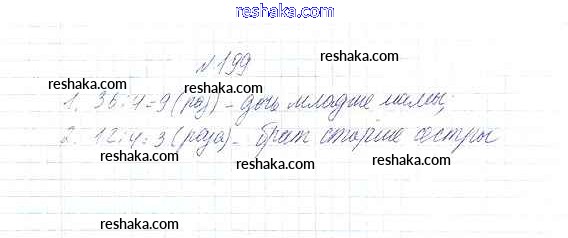 reshaka.com
№199
reshaka.com reshaka.com
reshaka.com reshaka.com
1. 36:4=9 (раз) - дочь младше мамы;
2. 12:4=3 (раза) - брат старше сестры
reshaka.com reshaka.com
reshaka.com reshaka.com